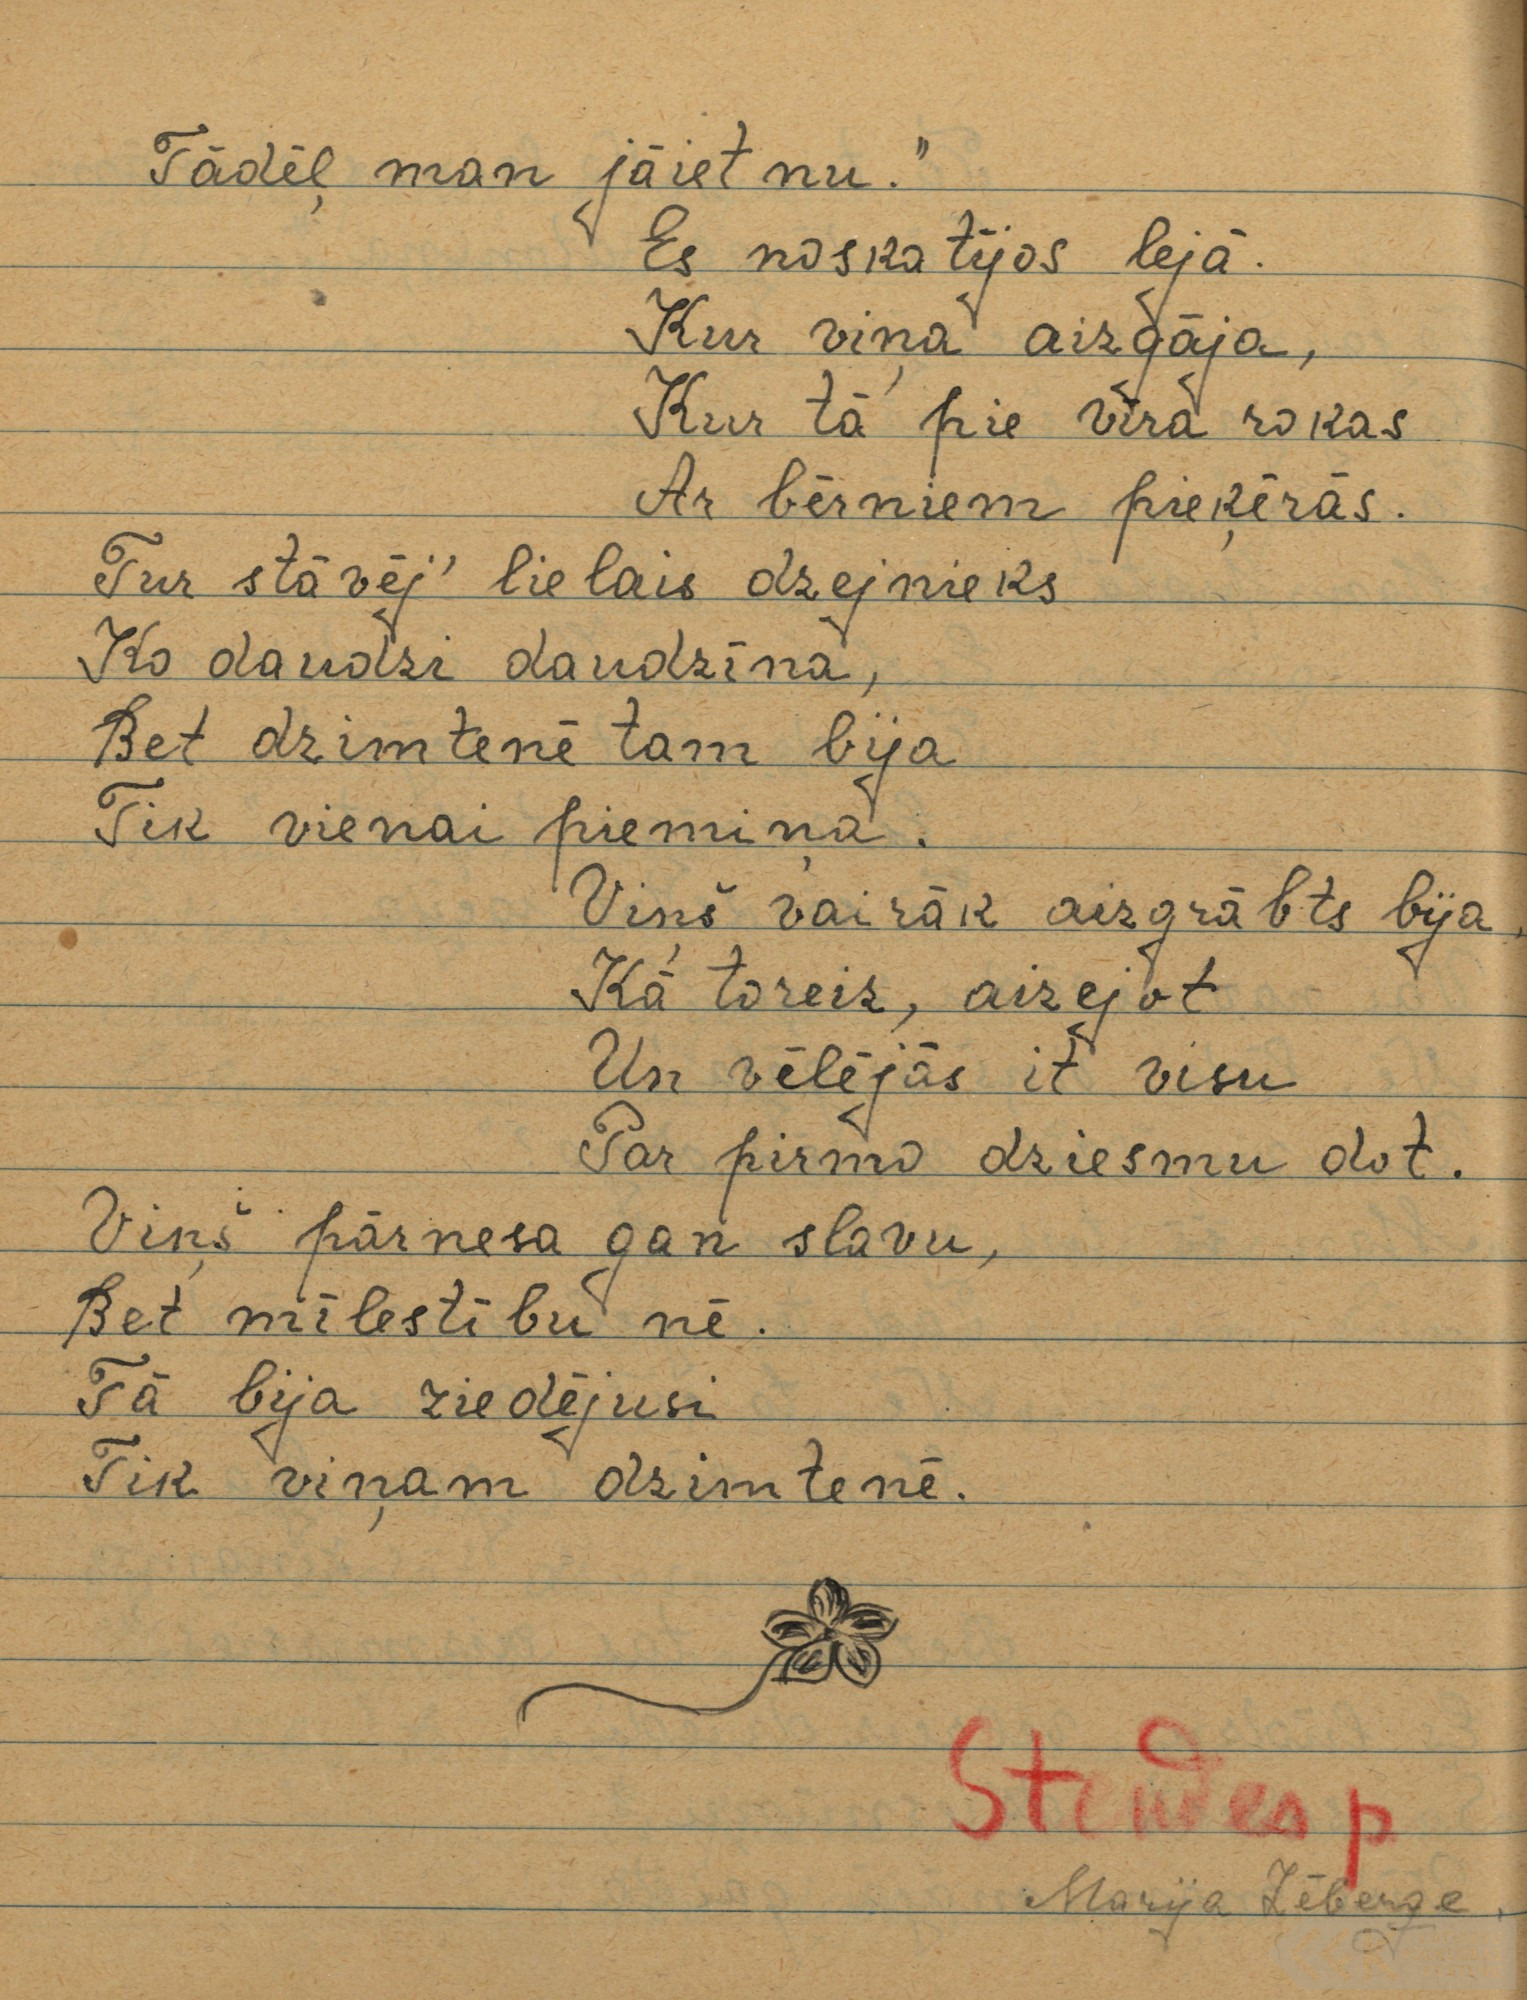 Tādēļ man jāiet nu."
Es noskatījos lejā.
Kur viņa aizgāja,
Kur tā pie vīra rokas
Ar bērniem pieķērās.
Tur stāvēj' lielais dzejnieks
Ko daudzi daudzina,
Bet dzimtenē tam bija
Tik vienai piemiņa.
Viņš vairāk aizgrābts bija,
Kā toreiz, aizejot
Un vēlējās it visu
Par pirmo dziesmu dot.
Viņš pārnesa gan slavu,
Bet mīlestību nē.
Tā bija ziedējusi
Tik viņam dzimtenē.
Stendes p
Marija Zēberge